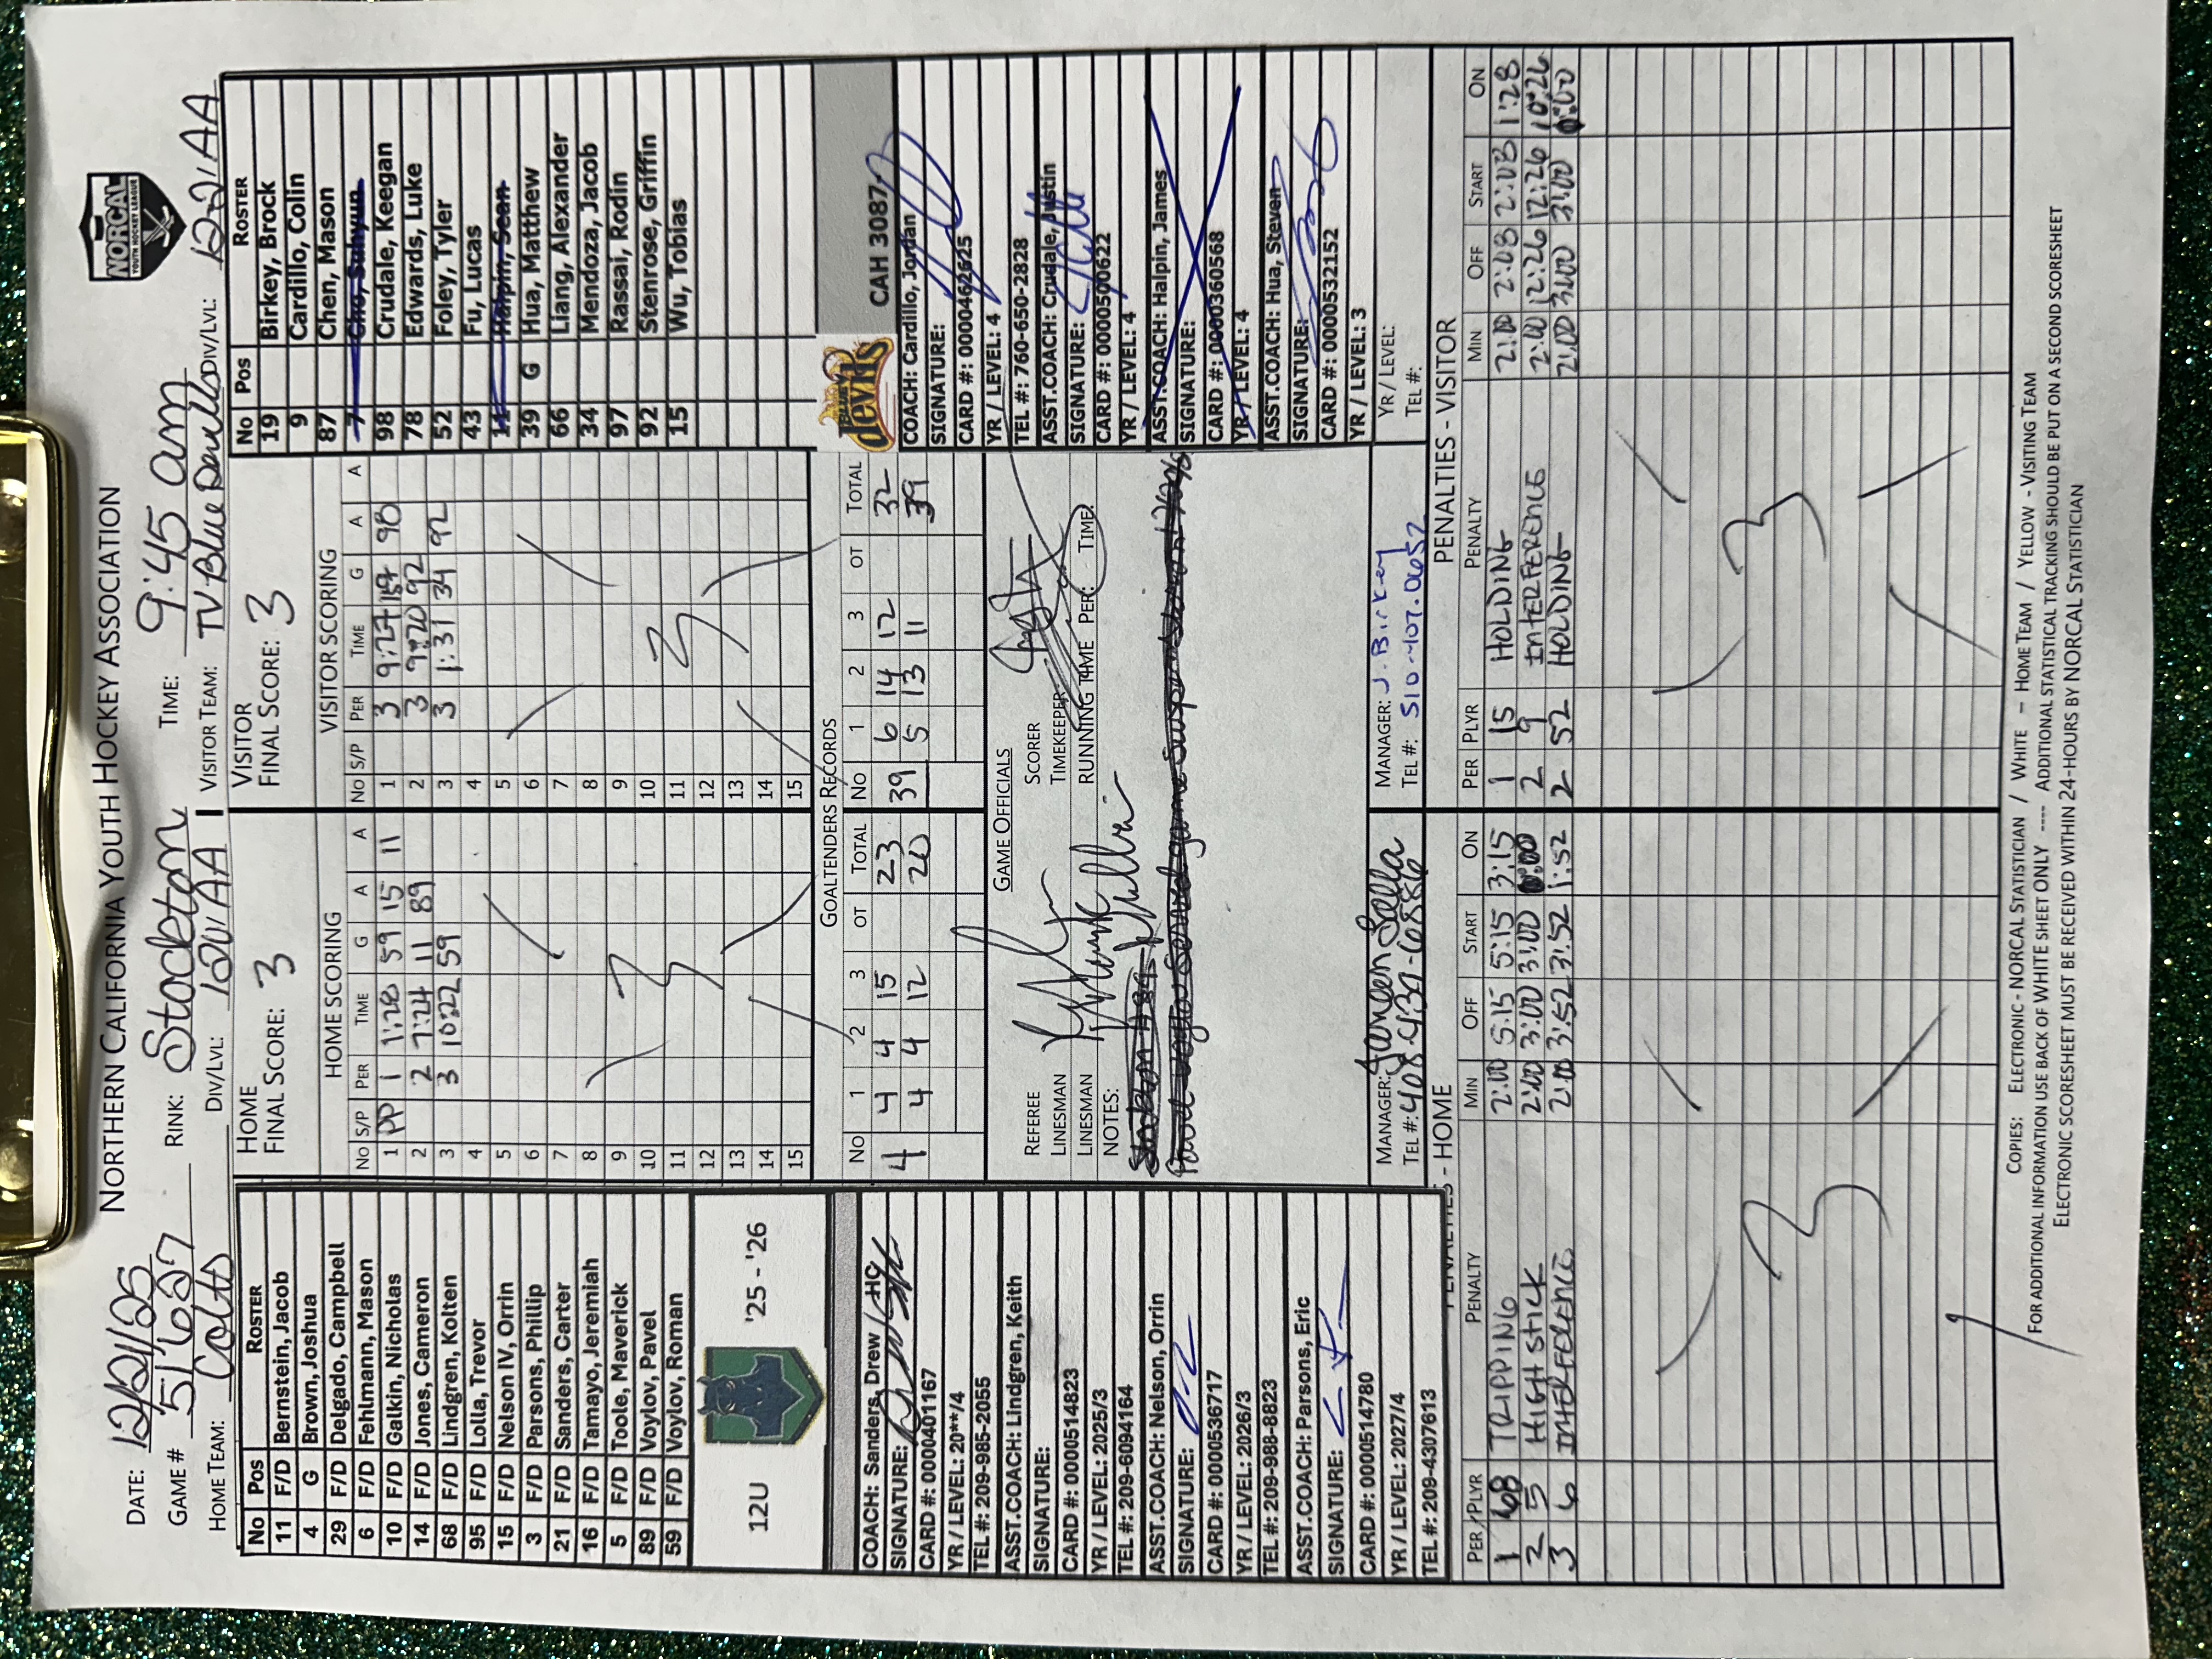 NORTHERN CALIFORNIA YOUTH HOCKEY ASSOCIATION
NORCAL
YOUTH HOCKEY LEAGUE
DATE: 12/21/25 RINK: Stockton TIME: 9:45 am
GAME # 51627
HOME TEAM: Colts DIV/LVL: 12U AA VISITOR TEAM: TV Blue Devils DIV/LVL: 12U AA
No Pos ROSTER
11 F/D Bernstein, Jacob
4 G Brown, Joshua
29 F/D Delgado, Campbell
6 F/D Fehlmann, Mason
10 F/D Galkin, Nicholas
14 F/D Jones, Cameron
68 F/D Lindgren, Kolten
95 F/D Lolla, Trevor
15 F/D Nelson IV, Orrin
3 F/D Parsons, Phillip
21 F/D Sanders, Carter
16 F/D Tamayo, Jeremiah
5 F/D Toole, Maverick
89 F/D Voylov, Pavel
59 F/D Voylov, Roman
12U '25 - '26
COACH: Sanders, Drew HC
SIGNATURE:
CARD #: 0000401167
YR / LEVEL: 20**/4
TEL #: 209-985-2055
ASST.COACH: Lindgren, Keith
SIGNATURE:
CARD #: 000514823
YR / LEVEL: 2025/3
TEL #: 209-6094164
ASST.COACH: Nelson, Orrin
SIGNATURE:
CARD #: 000536717
YR / LEVEL: 2026/3
TEL #: 209-988-8823
ASST.COACH: Parsons, Eric
SIGNATURE:
CARD #: 000514780
YR / LEVEL: 2027/4
TEL #: 209-4307613
HOME
FINAL SCORE: 3
HOME SCORING
No S/P PER TIME G A A
1 PP 1 1:28 59 15 11
2 2 7:24 11 89
3 3 10:22 59
4
5
6
7
8
9
10
11
12
13
14
15
3
VISITOR
FINAL SCORE: 3
VISITOR SCORING
No S/P PER TIME G A A
1 3 9:27 98
2 3 9:20 92
3 3 1:31 34 92
4
5
6
7
8
9
10
11
12
13
14
15
3
GOALTENDERS RECORDS
No 1 2 3 OT TOTAL No 1 2 3 OT TOTAL
4 4 4 15 23 39 6 14 12 32
4 4 12 20 5 13 11 39
GAME OFFICIALS
REFEREE
LINESMAN
LINESMAN
SCORER
TIMEKEEPER:
RUNNING TIME PER: TIME:
NOTES:
MANAGER: Janeen Lolla
TEL #: 408-437-6886
MANAGER: J. Birkey
TEL #: 510-407-0652
YR / LEVEL:
TEL #:
No Pos ROSTER
19 Birkey, Brock
9 Cardillo, Colin
87 Chen, Mason
7 Cho, Suhyun
98 Crudale, Keegan
78 Edwards, Luke
52 Foley, Tyler
43 Fu, Lucas
11 Halpin, Sean
39 G Hua, Matthew
66 Liang, Alexander
34 Mendoza, Jacob
97 Rassai, Rodin
92 Stenrose, Griffin
15 Wu, Tobias
BLUE devils
CAH 3087
COACH: Cardillo, Jordan
SIGNATURE:
CARD #: 0000462625
YR / LEVEL: 4
TEL #: 760-650-2828
ASST.COACH: Crudale, Justin
SIGNATURE:
CARD #: 000500622
YR / LEVEL: 4
ASST.COACH: Halpin, James
SIGNATURE:
CARD #: 0000360568
YR / LEVEL: 4
ASST.COACH: Hua, Steven
SIGNATURE:
CARD #: 0000532152
YR / LEVEL: 3
PENALTIES - HOME
PER PLYR PENALTY MIN OFF START ON
1 68 TRIPPING 2:00 5:15 5:15 3:15
2 5 HIGH STICK 2:00 3:00 3:00 0:00
3 6 INTERFERENCE 2:00 3:52 3:52 1:52
3
PENALTIES - VISITOR
PER PLYR PENALTY MIN OFF START ON
1 15 HOLDING 2:00 2:08 2:08 1:28
2 9 INTERFERENCE 2:00 12:26 12:26 10:26
2 52 HOLDING 2:00 3:00 3:00 0:00
3
COPIES: ELECTRONIC - NORCAL STATISTICIAN / WHITE - HOME TEAM / YELLOW - VISITING TEAM
FOR ADDITIONAL INFORMATION USE BACK OF WHITE SHEET ONLY ---- ADDITIONAL STATISTICAL TRACKING SHOULD BE PUT ON A SECOND SCORESHEET
ELECTRONIC SCORESHEET MUST BE RECEIVED WITHIN 24-HOURS BY NORCAL STATISTICIAN